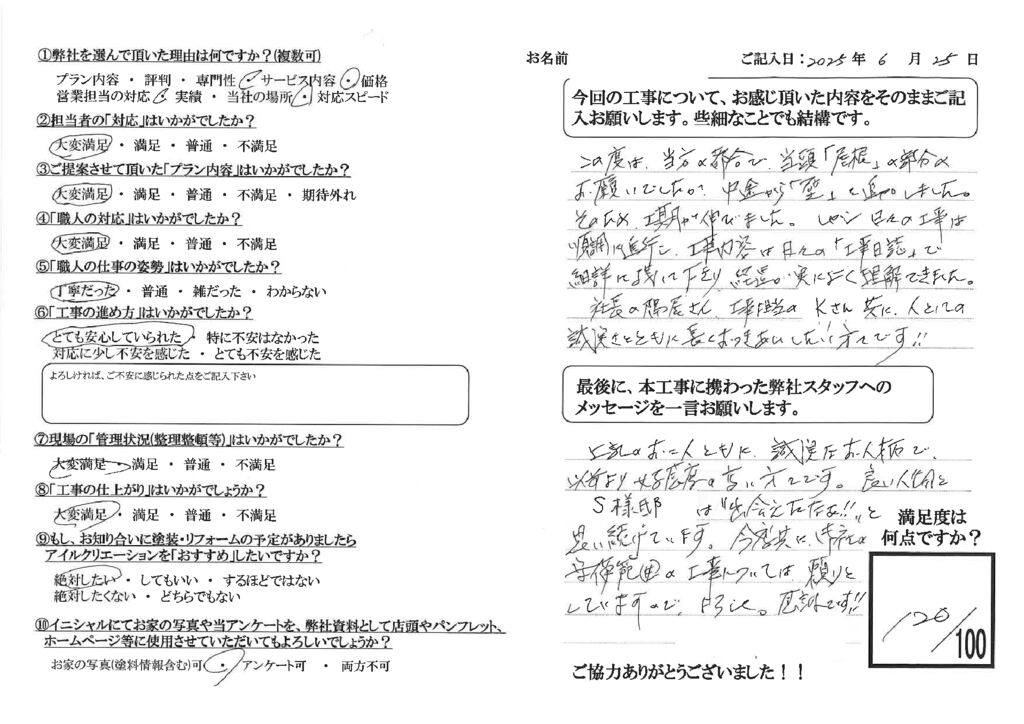 ①弊社を選んで頂いた理由は何ですか?(複数可)
プラン内容 ・ 評判 ・ 専門性 ・ サービス内容 ・ 価格
営業担当の対応 ・ 実績 ・ 当社の場所 ・ 対応スピード
②担当者の「対応」はいかがでしたか?
大変満足 ・ 満足 ・ 普通 ・ 不満足
③ご提案させて頂いた「プラン内容」はいかがでしたか?
大変満足 ・ 満足 ・ 普通 ・ 不満足 ・ 期待外れ
④「職人の対応」はいかがでしたか?
大変満足 ・ 満足 ・ 普通 ・ 不満足
⑤「職人の仕事の姿勢」はいかがでしたか?
丁寧だった ・ 普通 ・ 雑だった ・ わからない
⑥「工事の進め方」はいかがでしたか?
とても安心していられた ・ 特に不安はなかった
対応に少し不安を感じた ・ とても不安を感じた
よろしければ、ご不安に感じられた点をご記入下さい
⑦現場の「管理状況(整理整頓等)」はいかがでしたか?
大変満足 ・ 満足 ・ 普通 ・ 不満足
⑧「工事の仕上がり」はいかがでしょうか?
大変満足 ・ 満足 ・ 普通 ・ 不満足
⑨もし、お知り合いに塗装・リフォームの予定がありましたら
アイルクリエーションを「おすすめ」したいですか?
絶対したい ・ してもいい ・ するほどではない
絶対したくない ・ どちらでもない
⑩イニシャルにてお家の写真や当アンケートを、弊社資料として店頭やパンフレット、
ホームページ等に使用させていただいてもよろしいでしょうか?
お家の写真(塗料情報含む)可 ・ アンケート可 ・ 両方不可
お名前 ご記入日:2025年 6 月 25 日
今回の工事について、お感じ頂いた内容をそのままご記
入お願いします。些細なことでも結構です。
この度は、当方の都合で、当頭「屋根」の部分の
お願いでしたが、中途から「壁」も追加しました。
そのため工期が伸びました。しかし日々の工事は
順調に進行し、工事内容は日々の「工事日誌」で
細詳に残して下さり 経過が実によく理解できました。
社長の さん、工事担当の Kさん 共に、人としての
誠実さとともに長くおつきあいしたい方です!!
最後に、本工事に携わった弊社スタッフへの
メッセージを一言お願いします。
上記のお二人ともに、誠実なお人柄で、
以前より好感度の高い方々です。良い人々と
S様邸 は "出会えたなあ!!" と
思い続けています。今後共に、
守備範囲の工事については、頼りと
していますので、よろしく。感謝です!!
満足度は
何点ですか?
120/100
ご協力ありがとうございました!!